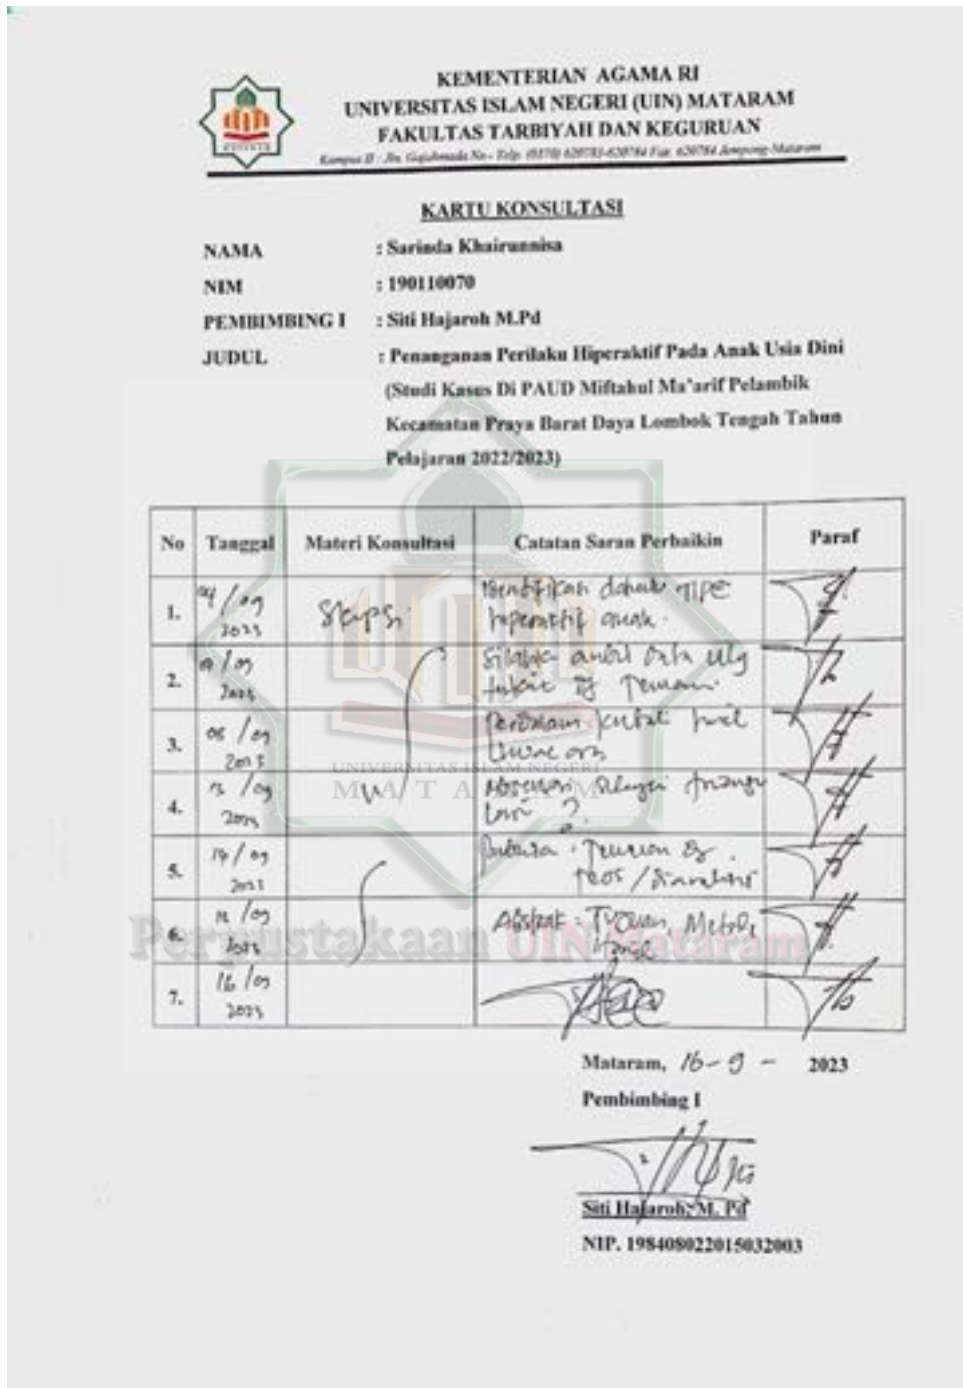 KEMENTERIAN AGAMA RI
UNIVERSITAS ISLAM NEGERI (UIN) MATARAM
FAKULTAS TARBIYAH DAN KEGURUAN
Kampus II : Jln. Gajahmada No- Telp. (0370) 620783-620784 Fax. 620784 Jempong-Mataram
MATARAM
KARTU KONSULTASI
NAMA : Sarinda Khairunnisa
NIM : 190110070
PEMBIMBING I : Siti Hajaroh M.Pd
JUDUL : Penanganan Perilaku Hiperaktif Pada Anak Usia Dini
(Studi Kasus Di PAUD Miftahul Ma'arif Pelambik
Kecamatan Praya Barat Daya Lombok Tengah Tahun
Pelajaran 2022/2023)
No Tanggal Materi Konsultasi Catatan Saran Perbaikin Paraf
1. 04/09 2023 Skripsi dahulu tipe
hiperaktif anak.
2. /09 2023 ambil data
3. 08/09 2023
4. 13/09 2023 Observasi
5. 14/09 2023
6. /09 2023 Abstrak : Tujuan, Metode,
7. 16/09 2023
UNIVERSITAS ISLAM NEGERI
MATARAM
Perpustakaan UIN Mataram
Mataram, 16-9- 2023
Pembimbing I
Siti Hajaroh, M. Pd
NIP. 198408022015032003